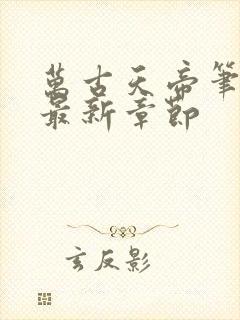 萬古天帝筆
最新章節
玄反影